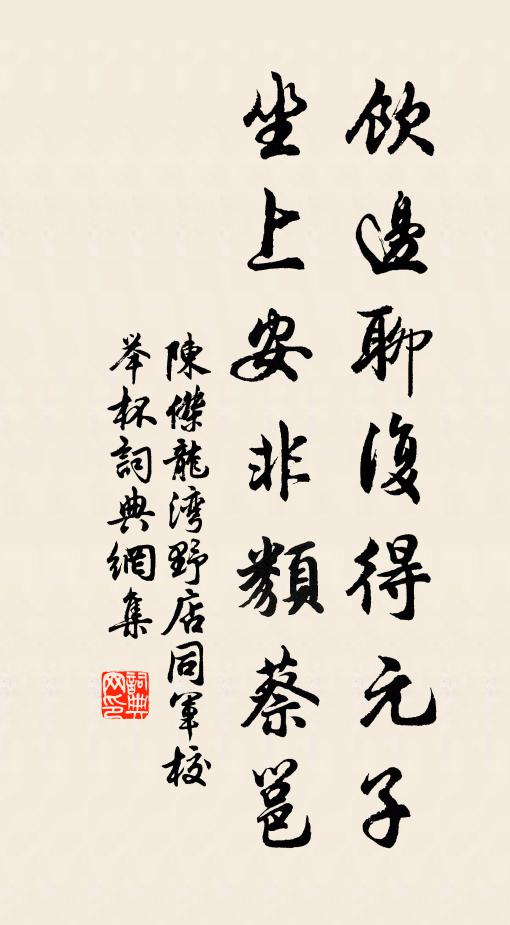 飲邊聊復得元子
坐上安非類蔡邕
陳傑龍湾野店同軍校
举杯詞典網集
詞典
网印